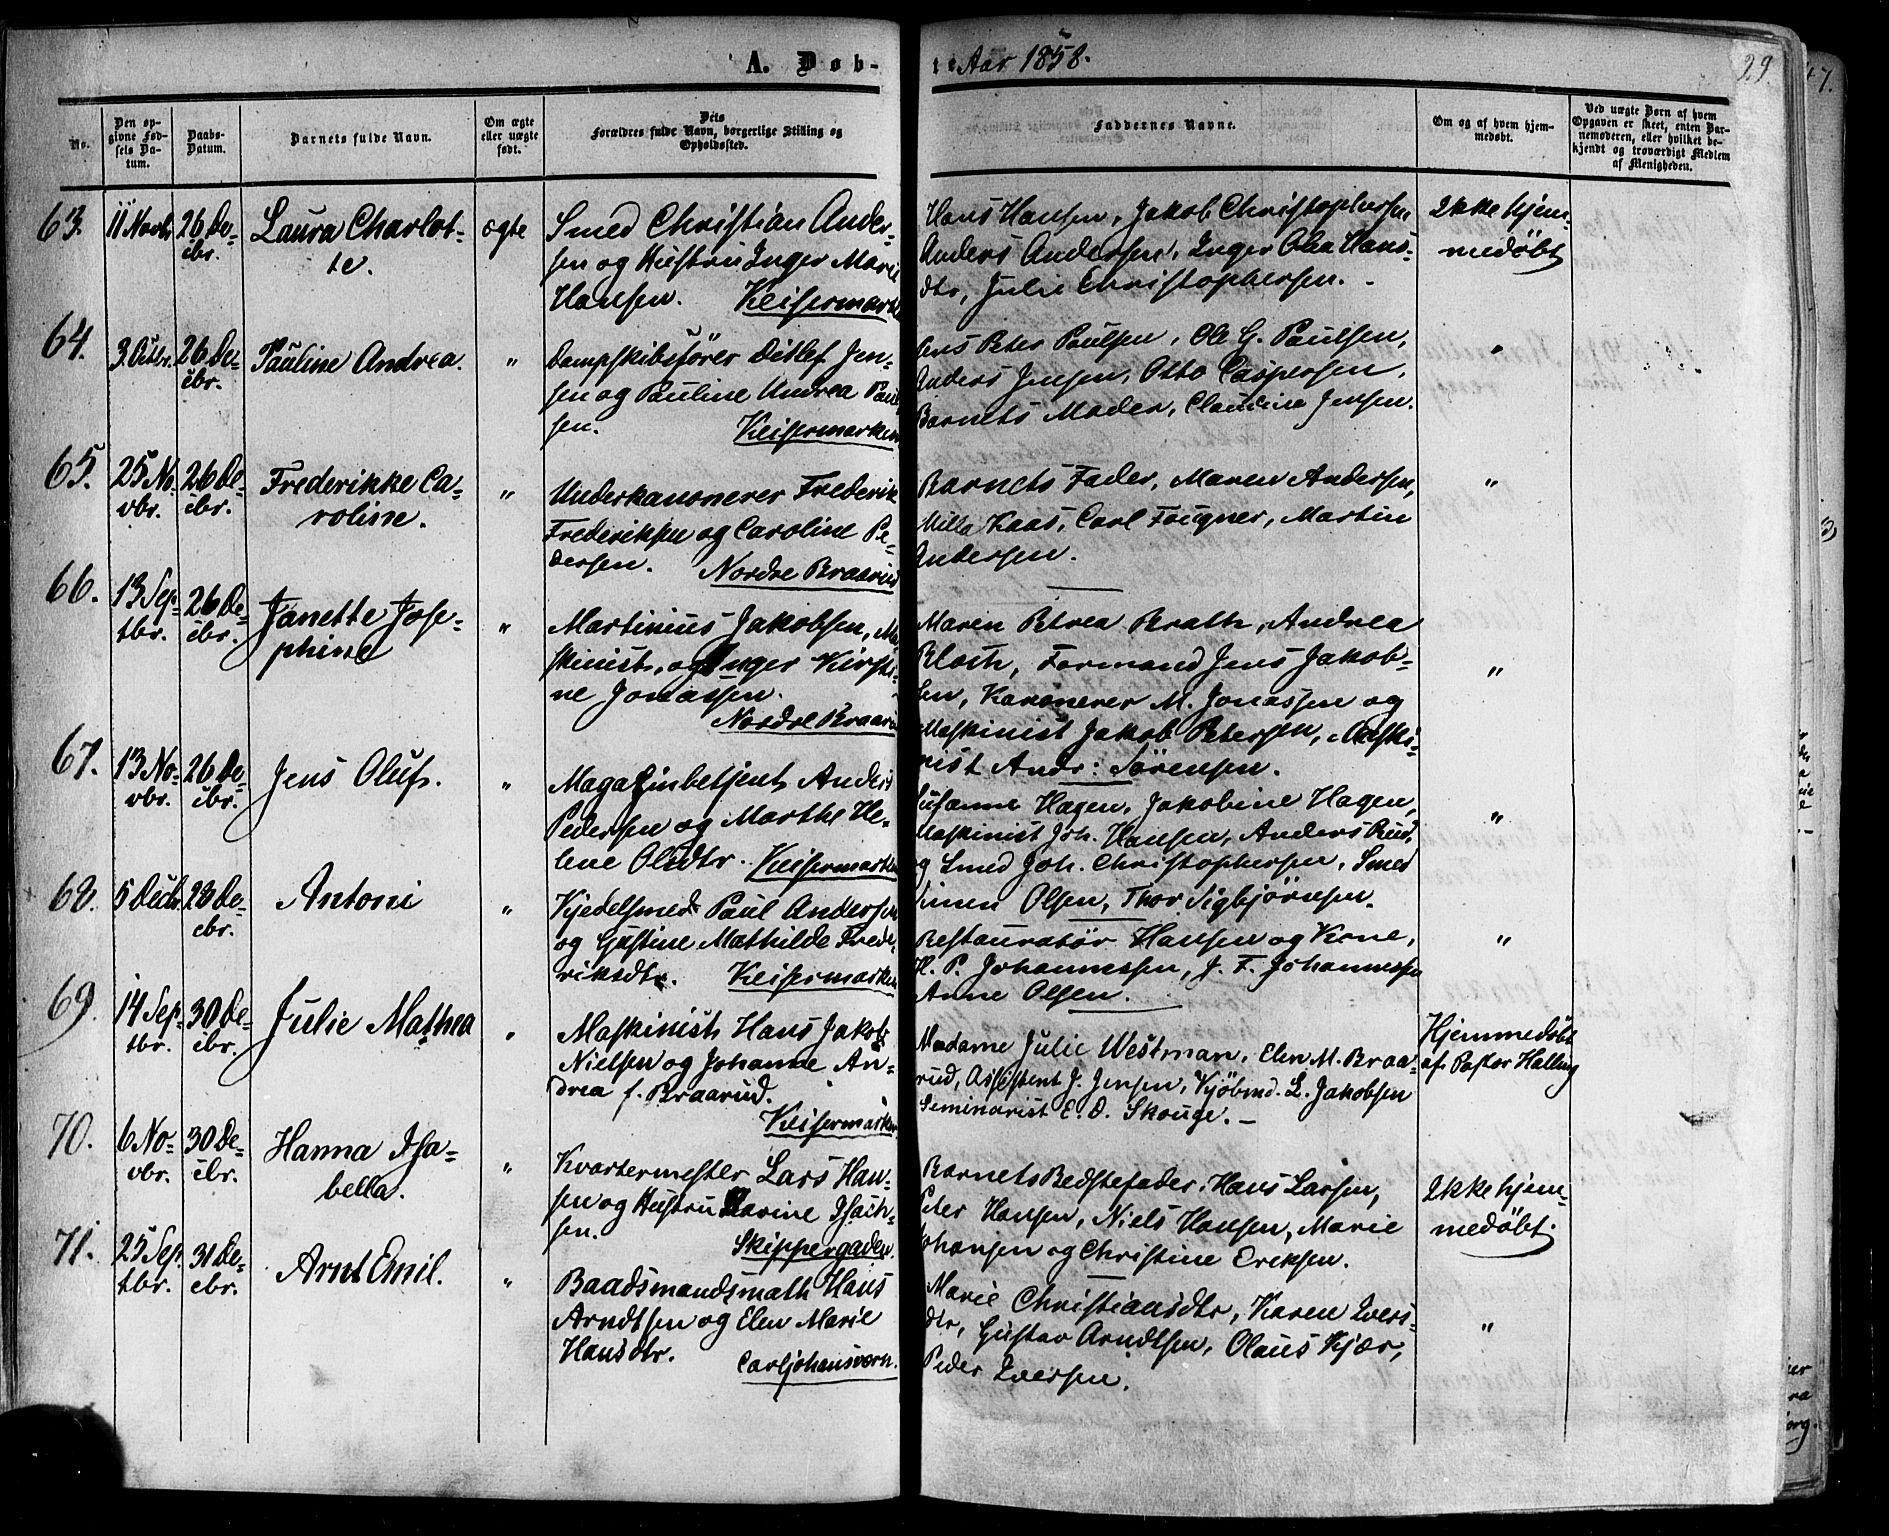 A. Døb-
Aar 1858.
29.
No.
Den op-
givne Fød-
sels Da-
tum.
Daabs-
Datum.
Barnets fulde Navn.
Om ægte
eller uægte
født.
Dets
Forældres fulde Navn, borgerlige Stilling og
Opholdssted.
Faddernes Navne.
Om og af hvem hjem-
medøbt.
Ved uægte Børn af hvem
Opgaven er skeet, enten Bar-
nemoderen, eller hvilket be-
kjendt og troværdigt Medlem
af Menigheden.
63. 11 Novbr. 26 De-
cbr.
Laura Charlot-
te.
ægte
Smed Christian Ander-
sen og Hustru Inger Marie
Hansen. Keisermarken
Hans Hansen, Jakob Christophersen
Anders Andersen, Inger Olea Hans-
dtr, Julie Christophersen.
Ikke hjem-
medøbt
64. 3. Octbr. 26 De-
cbr.
Pauline Andrea.
"
Dampskibsfører Ditlef Jen-
sen og Pauline Andrea Paul-
sen. Keisermarken
Peter Paulsen, Ole G. Paulsen,
Anders Jensen, Otto Caspersen,
Barnets Moder, Claudine Jensen.
"
65. 25 No-
vbr.
26 De-
cbr.
Frederikke Ca-
roline.
"
Underkanonerer Frederik
Frederiksen og Caroline Pe-
dersen. Nordre Braarud
Barnets Fader, Maren Andersen,
Milla Kaas, Carl Fougner, Martin
Andersen.
"
66. 13 Sep-
tbr.
26 De-
cbr.
Janette Jose-
phine
"
Martinius Jakobsen, Ma-
skinist, og Inger Kirsti-
ne Jonassen.
Nordre Braarud
Maren Petrea Brath, Andrea
Bloch, Formand Jens Jakob-
sen, Kanonerer M. Jonassen og
Maskinist Jakob Petersen, Maski-
nist Andr: Sörensen.
"
67. 13 No-
vbr.
26 De-
cbr.
Jens Oluf.
"
Magasinbetjent Anders
Pedersen og Marthe He-
lene Olsdtr. Keisermarken
Susanne Hagen, Jakobine Hagen,
Maskinist Joh. Hansen, Anders Ruud,
og Smed Joh. Christophersen, Smed
Simen Olsen, Thor Sigbjörnsen.
"
68. 5 Decbr 28 De-
cbr.
Antoni
"
Kjedelsmed Paul Andersen
og Gustine Mathilde Frede-
riksdtr. Keisermarken
Restauratör Hansen og Kone,
H. P. Johannessen, J. F. Johannessen
Anne Olsen.
"
69. 14 Sep-
tbr.
30 De-
cbr.
Julie Mathea
"
Maskinist Hans Jakob
Nielsen og Johanne An-
drea f. Braarud.
Keisermarken
Madame Julie Westman, Elen M. Braa-
rud, Assistent J. Jensen, Kjöbmd. L. Jakobsen
Seminarist E. O. Skouge.
Hjemmedöbt
af Pastor Halling
70. 6 No-
vbr.
30 De-
cbr.
Hanna Isa-
bella.
"
Kvartermester Lars Han-
sen og Hustru Karine Isach-
sen.
Skippergaden.
Barnets Bedstefader: Hans Larsen,
Peter Hansen, Niels Hansen, Marie
Johansen og Christine Ericksen.
Ikke hjem-
medöbt.
71. 25 Sep.
tbr.
31 De-
cbr.
Arnt Emil.
"
Baadsmandsmath Hans
Arndtsen og Elen Marie
Hansdtr.
Carljohansværn.
Marie Christiansdtr, Karen Ivers-
dtr, Gustav Arndtsen, Olaus Kjær,
Peder Iversen.
"